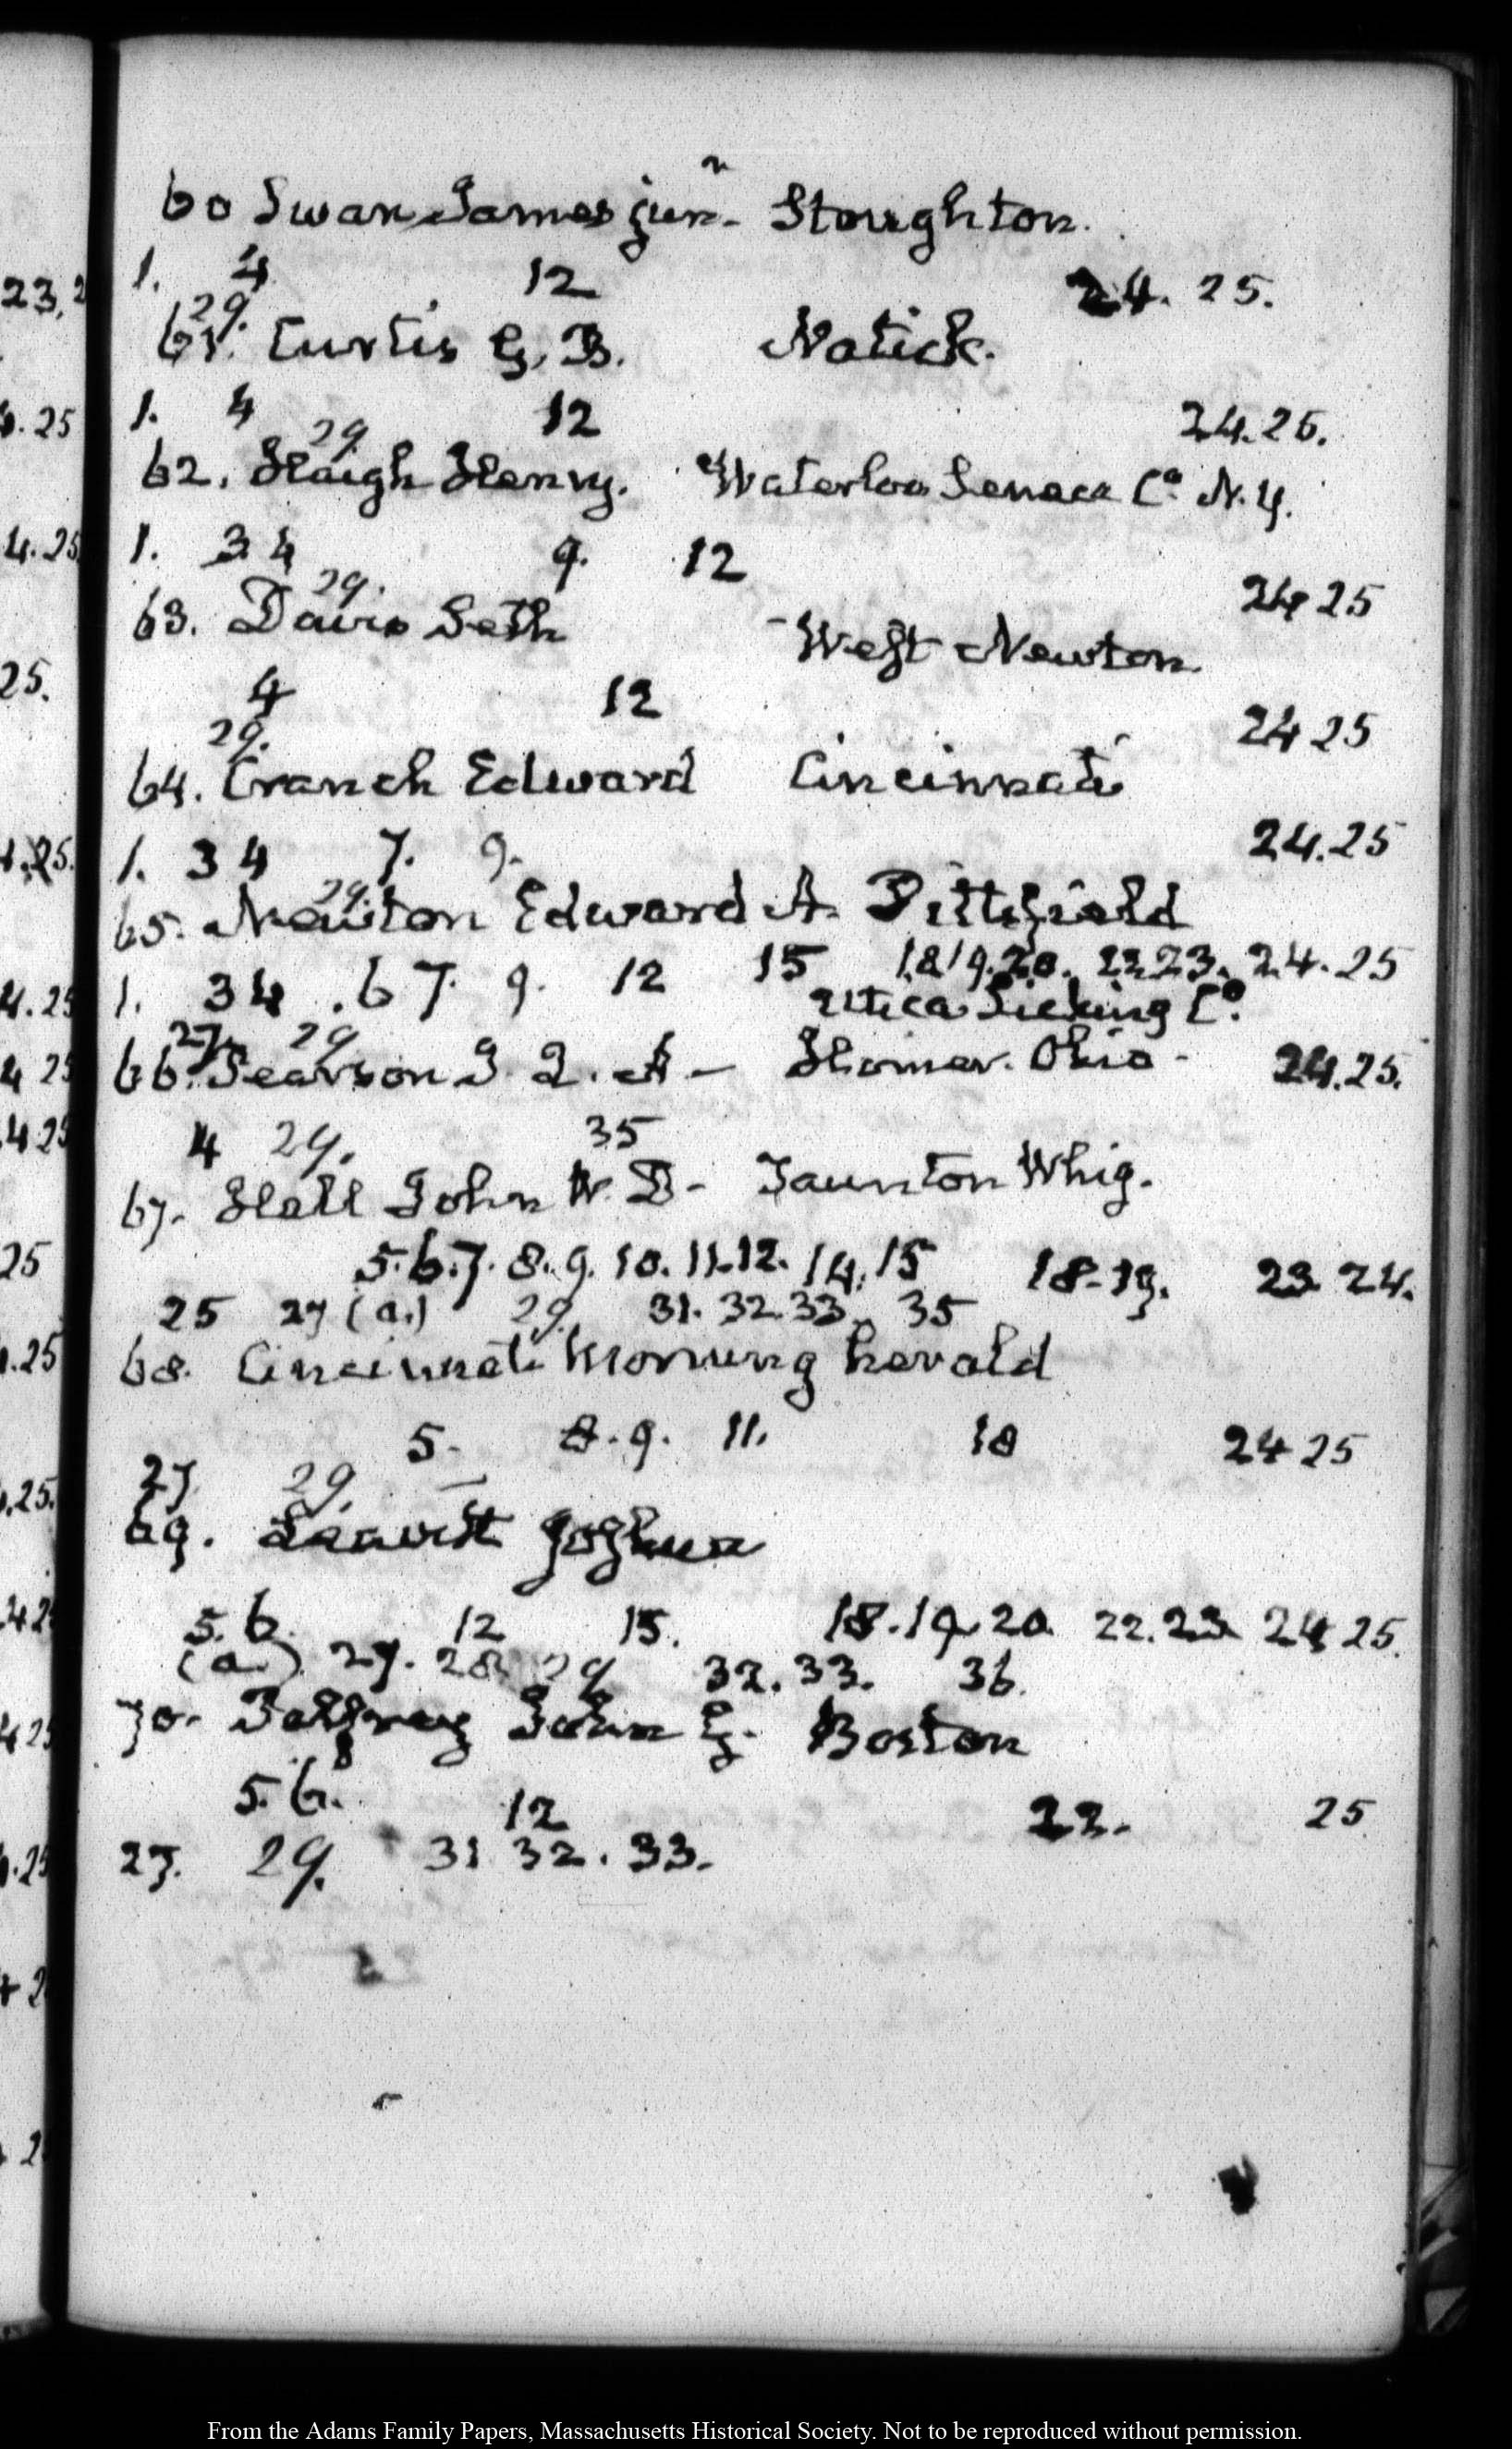 60 Swan James junr. Stoughton.
1. 4 12 24. 25.
29.
61. Curtis G. B. Natick.
1. 4 12 24.25.
29.
62. Haigh Henry. Waterloo Seneca Co. N.Y.
1. 3 4 9. 12 24 25
29.
63. Davis Seth West Newton
4 12 24 25
29.
64. Cranch Edward Cincinnati
1. 3 4 7. 9. 24.25
29.
65. Newton Edward A. Pittsfield
1. 34 .6 7. 9. 12 15 18 19.20. 22 23. 24.25
27. 29 Utica Licking Co.
66. Pearson J. L. A - Homer. Ohio - 24.25.
4 29. 35
67. Hall John W. D- Taunton Whig.
5.6.7. 8.9. 10.11.12. 14.15 18-19. 23 24.
25 27 (a.) 29. 31. 32.33. 35
68. Cincinnati Morning herald
5- 8.9. 11. 18 24 25
27. 29.
69. Leavitt Joshua
5.6. 12 15. 18.19.20. 22.23 24 25.
(a.) 27. 28 29 32.33. 36.
70. Palfrey John G. Boston
5.6. 12 22. 25
27. 29. 31 32. 33.
From the Adams Family Papers, Massachusetts Historical Society. Not to be reproduced without permission.